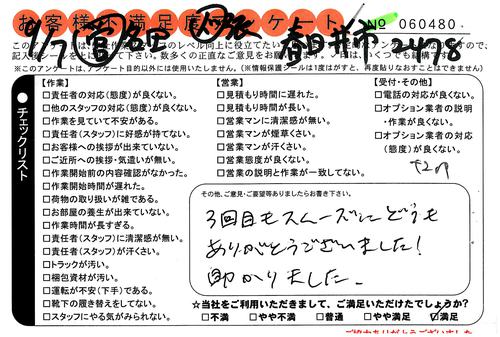 お客様不満足度アンケート No 060480
9/7 図収 春日井市 2478
このアンケートは
【作業】
□責任者の対応(態度)が良くない。
□他のスタッフの対応(態度)が良くない。
□作業を見ていて不安がある。
□責任者(スタッフ)に好感が持てない。
□お客様への挨拶が出来ていない。
□ご近所への挨拶・気遣いが無い。
□作業開始前の内容確認がなかった。
□作業開始時間が遅れた。
□荷物の取り扱いが雑である。
□お部屋の養生が出来ていない。
□作業時間が長すぎる。
□責任者(スタッフ)に清潔感が無い。
□責任者(スタッフ)が汗くさい。
□トラックが汚い。
□梱包資材が汚い。
□運転が不安(下手)である。
□靴下の履き替えをしてない。
□スタッフにやる気がみられない。
●チェックリスト
【営業】
□見積もり時間に遅れた。
□見積もり時間が長い。
□営業マンに清潔感が無い。
□営業マンが煙草くさい。
□営業マンが汗くさい。
□営業態度が良くない。
□営業の説明と作業が一致してない。
【受付・その他】
□電話の対応が良くない。
□オプション業者の説明
・作業が良くない。
□オプション業者の対応
(態度)が良くない。
その他、ご意見・ご要望等ありましたらお書き下さい。
3回目もスムーズにどうも
ありがとうございました!
助かりました。
☆当社をご利用いただきまして、ご満足いただけたでしょうか?
□不満 □やや不満 □普通 □やや満足 □満足
ご協力ありがとうございました